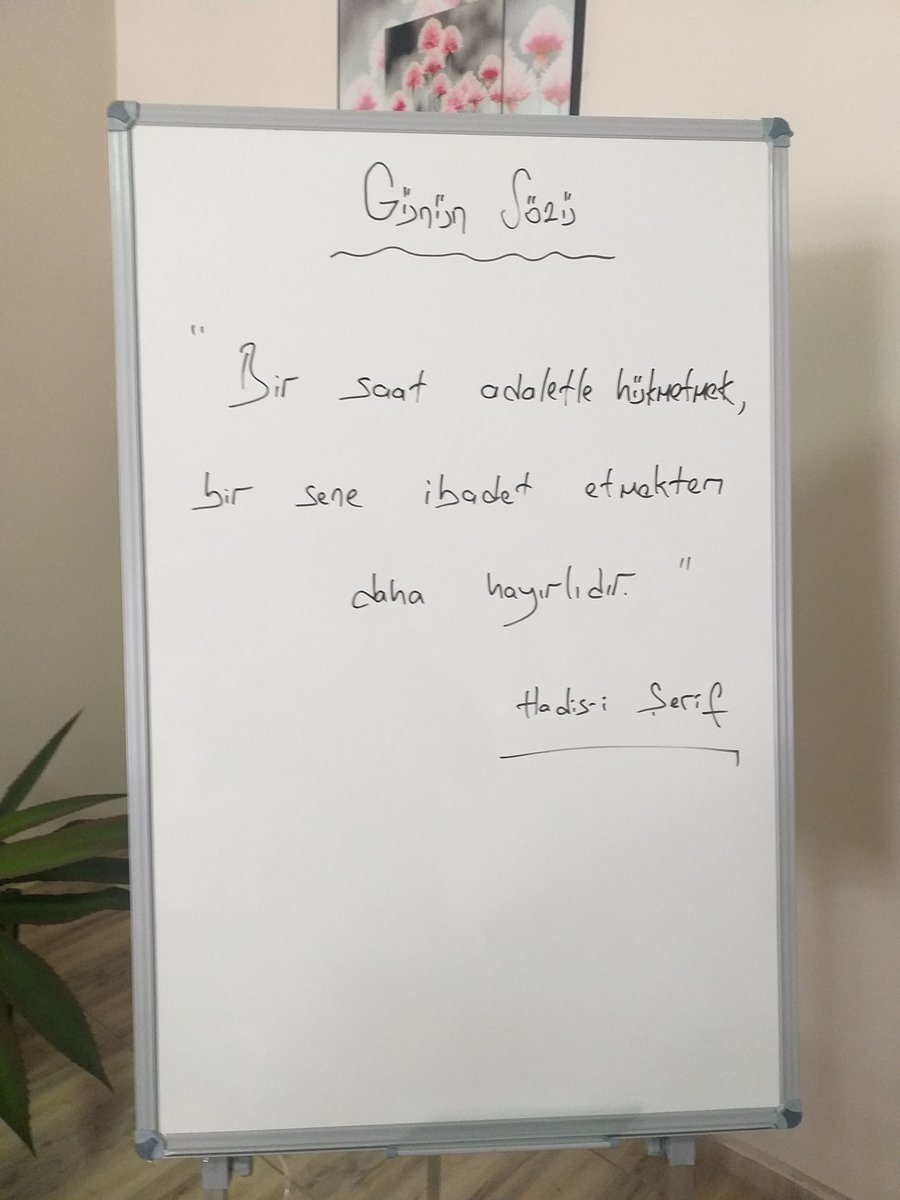 Günün Sözü
" Bir saat adaletle hükmetmek,
bir sene ibadet etmekten
daha hayırlıdır. "
Hadis-i Şerif